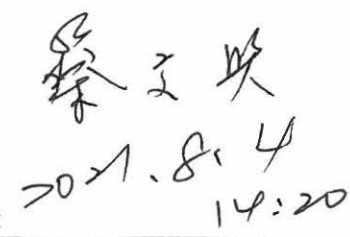 蔡文昊
2021.8.4
14:20